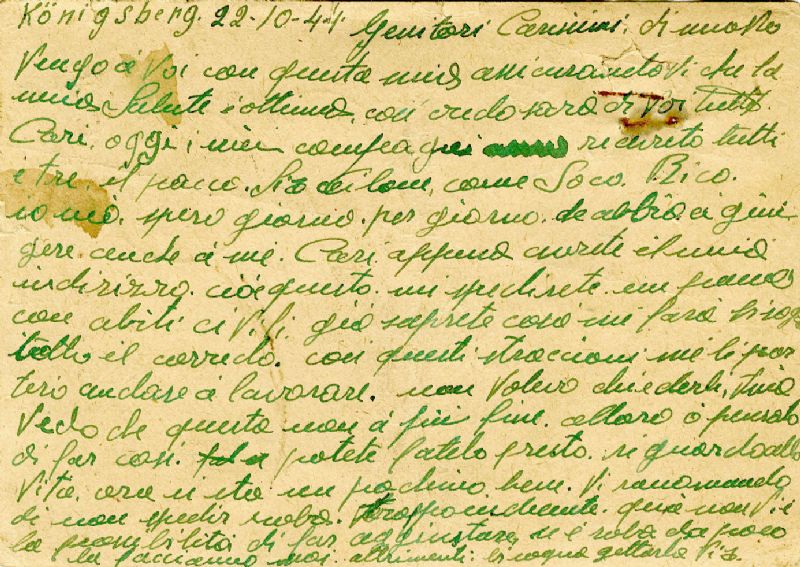 Königsberg. 22-10-44.
Genitori Carissimi: di nuovo
Vengo a Voi con questa mia assicurandoVi che la
mia Salute è ottima, con credo sarà di Voi tutti
Cari, oggi, i miei compagni ricevuto tutti
e tre, il pacco. Sia di loro, come Soco. Rico.
io nò. spero giorno. per giorno. che abbia a giun
gere. anche a me. Cari appena avrete il mio
indirizzo. cioè questo. mi spedirete. un pacco
con abiti civili, già saprete cosa mi farà bisogno
tutto il corredo. con questi straccioni me li por
terò andare a lavorare. non Volevo chiederli,
Vedo che questa non à più fine. allora ò pensato
di far così. potete fatelo presto. riguardo alla
Vita, ora si sta un pochino bene. Vi raccomando
di non spedir roba. troppo andante. quà non Vi è
la possibilità di far aggiustare, se è roba da poco
la facciamo noi. altrimenti: bisogna gettarla Via.